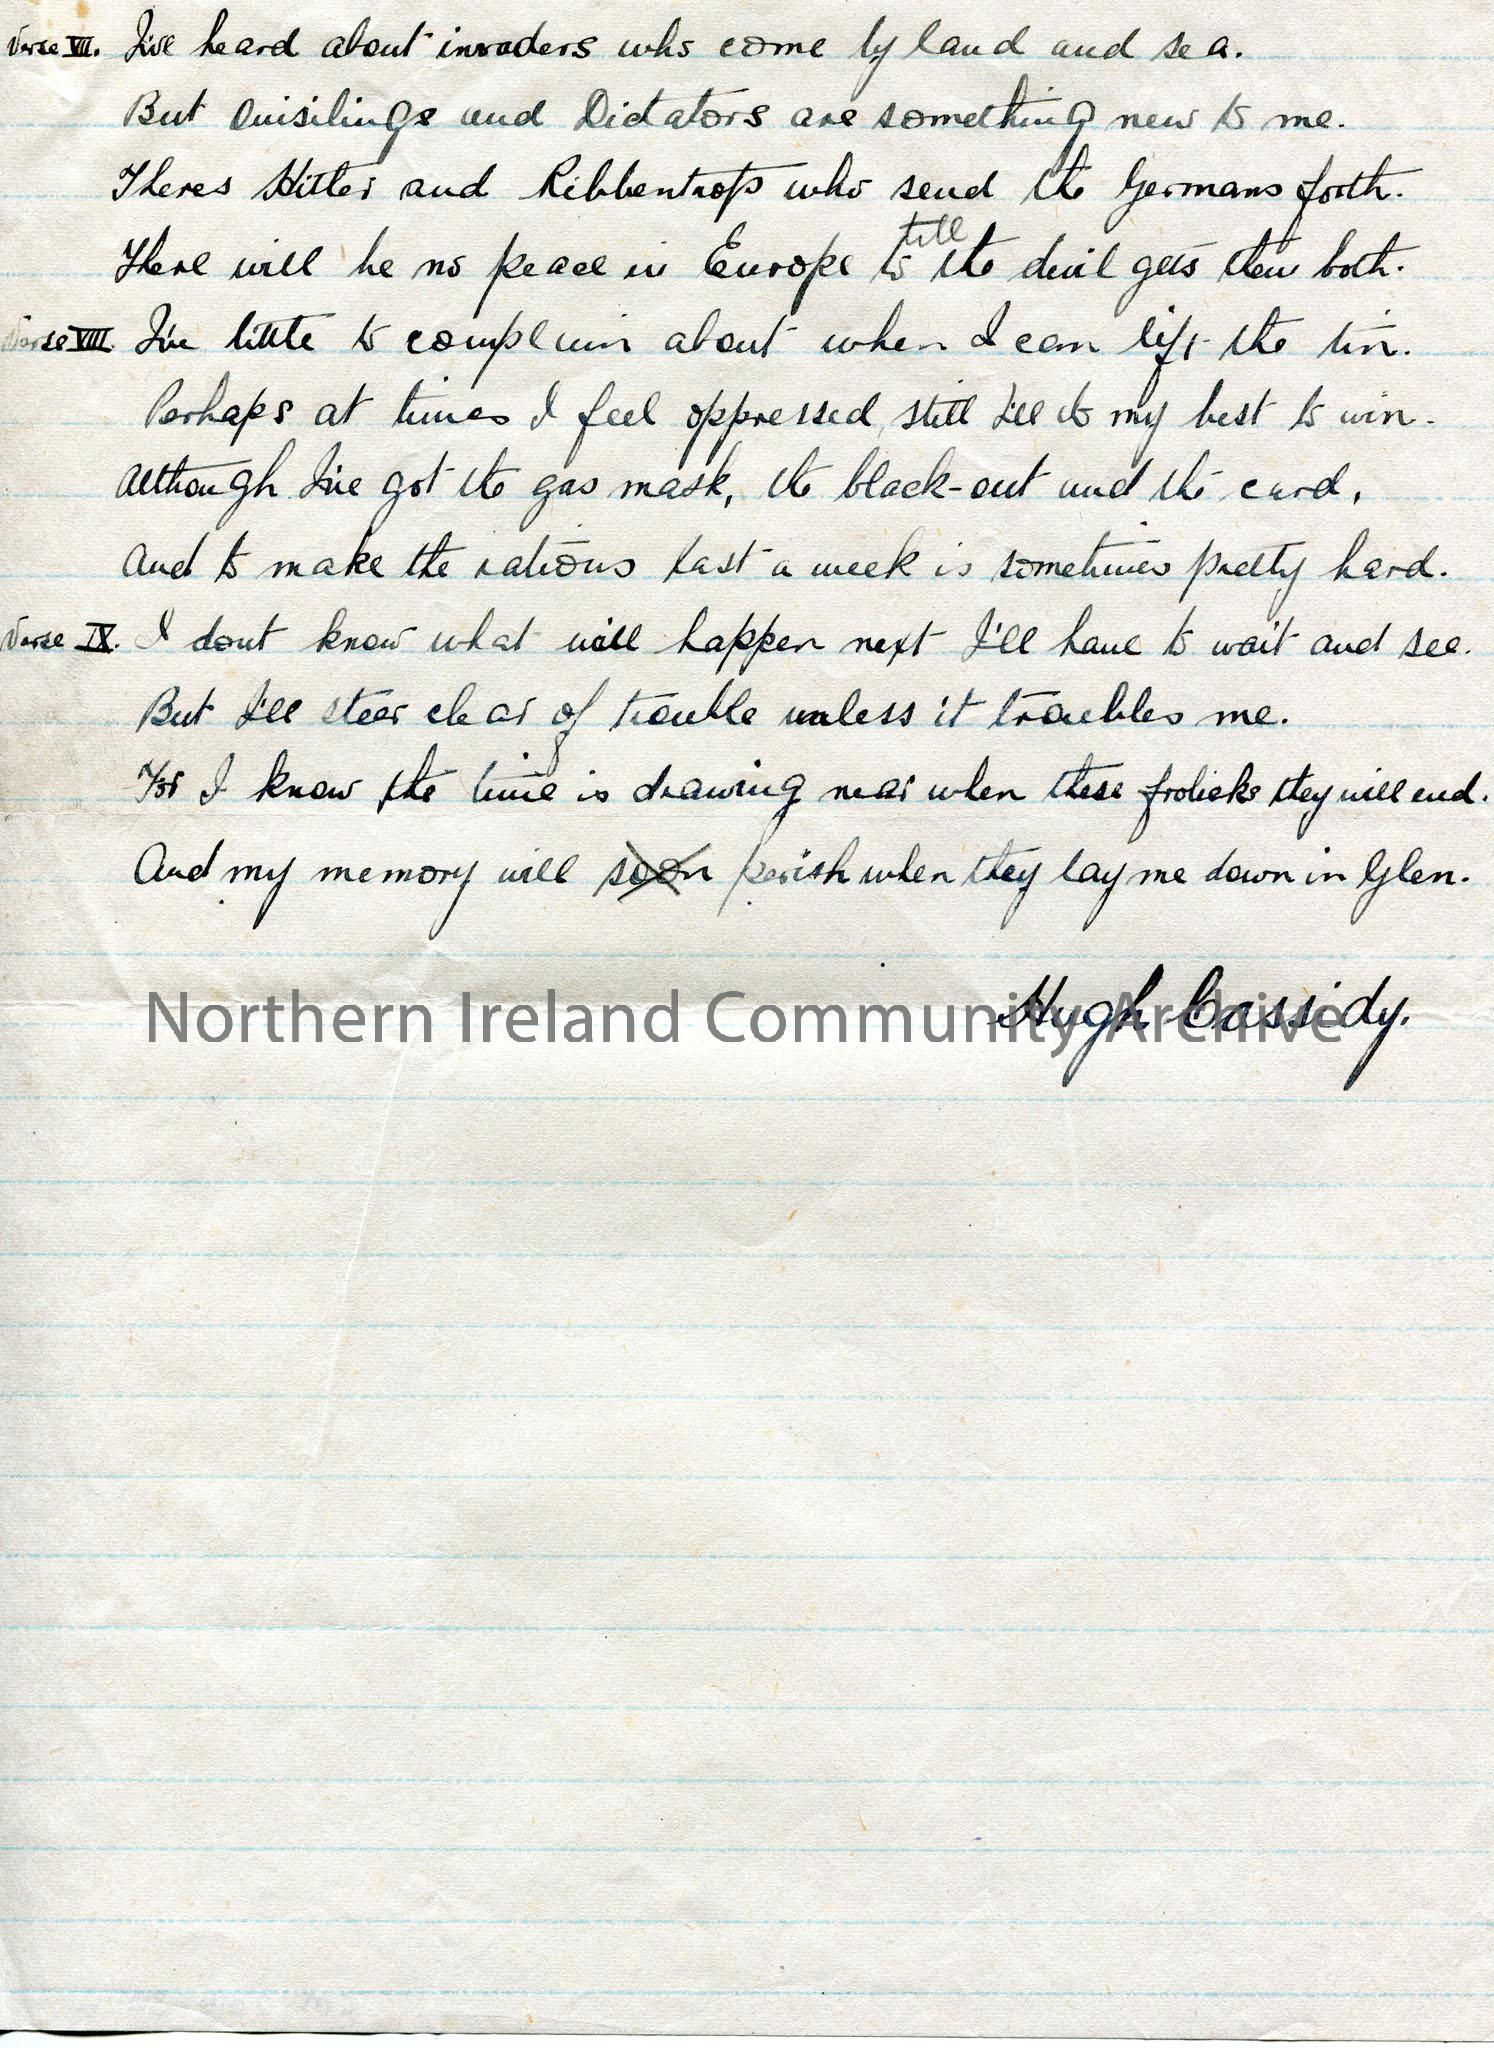 Verse VII. I've heard about invaders who come by land and sea.
But Quisilings and Dictators are something new to me.
Theres Hitler and Ribbentrop who send the Germans forth.
till
There will be no peace in Europe to the devil gets them both.
Verse VIII. I've little to complain about when I can lift the tin.
Perhaps at times I feel oppressed, still I'll do my best to win.
Although I've got the gas mask, the black-out and the card,
And to make the rations last a week is sometimes pretty hard.
Verse IX. I dont know what will happen next I'll have to wait and see.
But I'll steer clear of trouble unless it troubles me.
For I know the time is drawing near when these frolicks they will end.
And my memory will soon perish when they lay me down in Glen.
Hugh Cassidy.
Northern Ireland Community Archive